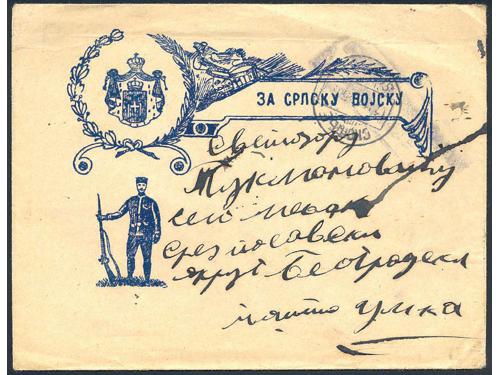 ЗА СРПСКУ ВОЈСКУ
Светозару
село
срез посавски
округ Београдски
пошта Умка